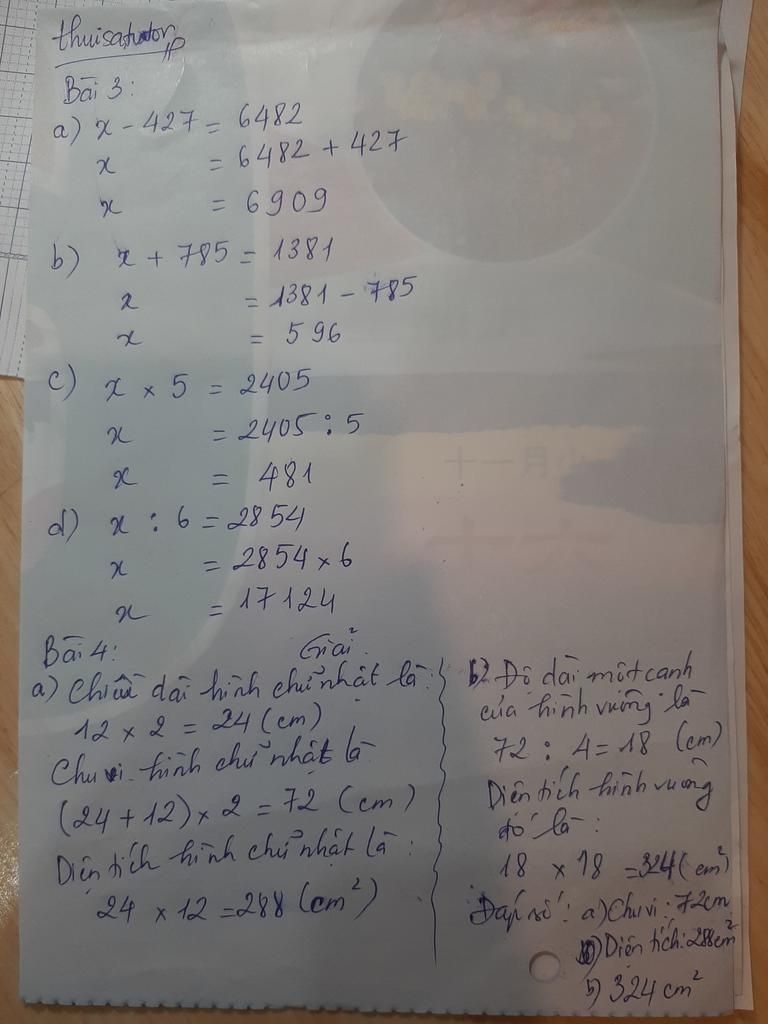 thuisatutor
Bài 3:
a) x - 427 = 6482
x = 6482 + 427
x = 6909
b) x + 785 = 1381
x = 1381 - 785
x = 596
c) x × 5 = 2405
x = 2405 : 5
x = 481
d) x : 6 = 2854
x = 2854 × 6
x = 17124
Bài 4: Giải
a) Chiều dài hình chữ nhật là:
12 × 2 = 24 (cm)
Chu vi hình chữ nhật là
(24 + 12) × 2 = 72 (cm)
Diện tích hình chữ nhật là:
24 × 12 = 288 (cm²)
b) Độ dài một cạnh
của hình vuông là
72 : 4 = 18 (cm)
Diện tích hình vuông
đó là:
18 × 18 = 324 (cm²)
Đáp số: a) Chu vi: 72cm
Diện tích: 288cm²
b) 324 cm²